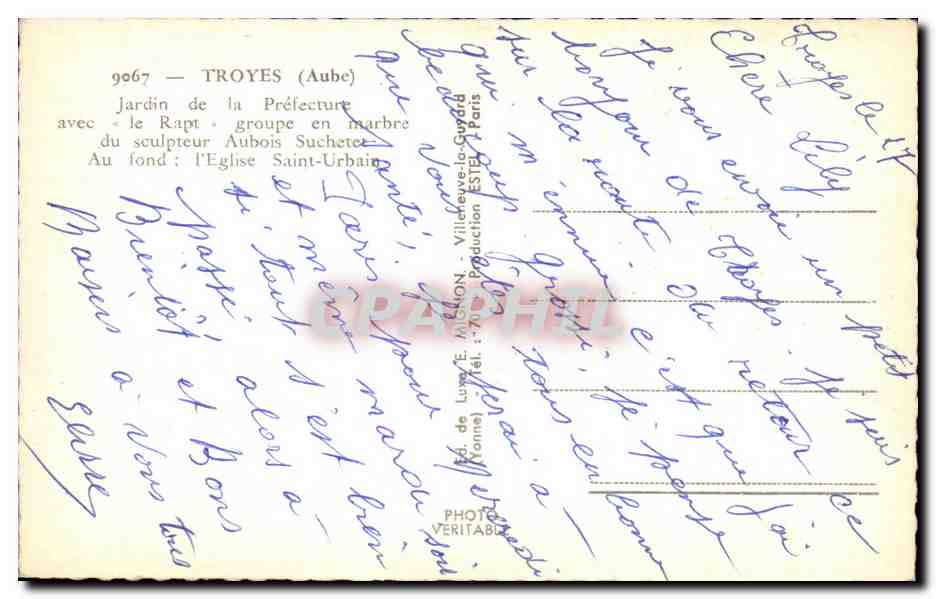 9067 — TROYES (Aube)
Jardin de la Préfecture
avec « le Rapt » groupe en marbre
du sculpteur Aubois Suchetet
Au fond : l'Eglise Saint-Urbain
Ed. de Luxe E. MIGNON. - Villeneuve-la-Guyard
(Yonne) Tél. : 70 Production ESTEL Paris
PHOTO
VERITABLE
CPAPHIL
Troyes le 17
Chère Lily
Je vous envoie un petit
bonjour de Troyes. Je suis
sur la route du retour ce
qui m'ennuie c'est que j'ai
beaucoup grossi, je pense
que vous êtes tous en bonne
santé, je serai à
Paris pour mardi soir
et même mercredi
si tout s'est bien
passé alors à
Bientôt et Bons
Baisers à vous tous